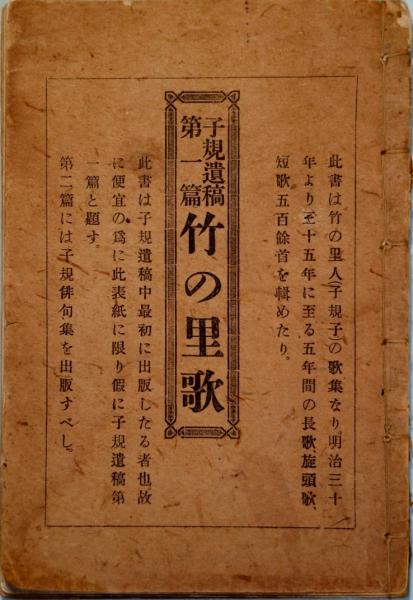 此書は竹の里人(子規子)の歌集なり明治三十一
年より三十五年に至る五年間の長歌、旋頭歌、
短歌五百餘首を輯めたり。
子規遺稿
第一篇
竹の里歌
此書は子規遺稿中最初に出版したる者也故
に便宜の爲に此表紙に限り假に子規遺稿第
一篇と題す。
第二篇には子規俳句集を出版すべし。